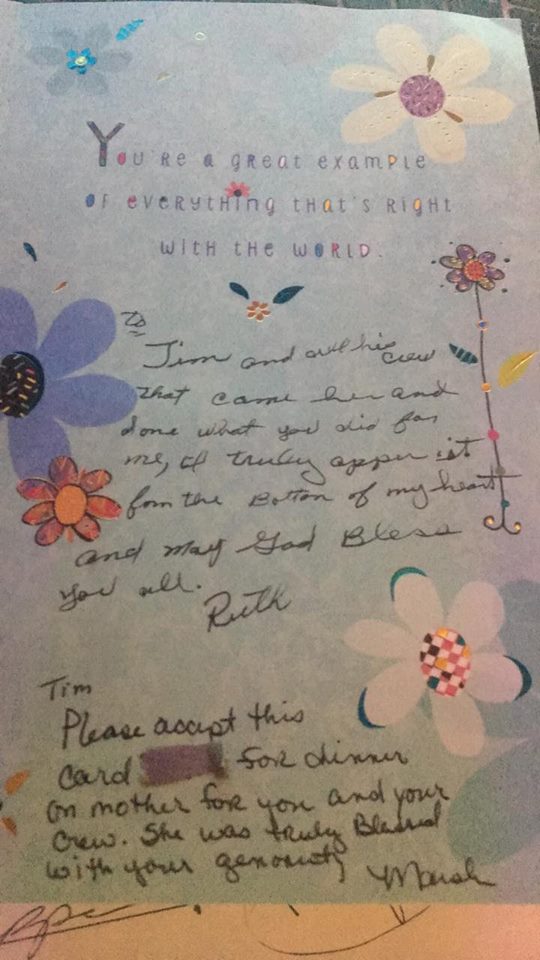 You're a great example
of everything that's right
with the world.
To
Tim and all his crew
that came her and
done what you did for
me, I truly apper ist
fom the Botton of my heart
and may God Bless
you all.
Ruth
Tim
Please accept this
card for dinner
on mother for you and your
crew. She was truly Blessed
with your genorosity